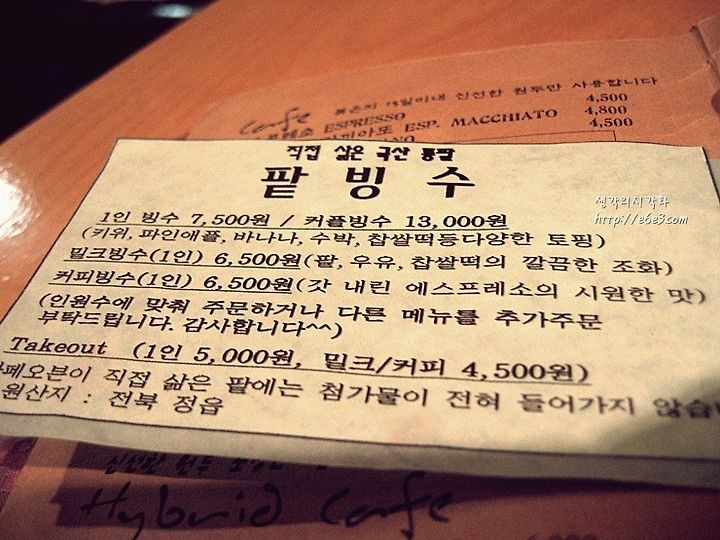 Cafe 볶은지 15일이내 신선한 원두만 사용합니다
ESPRESSO 4,500
ESP. MACCHIATO 4,800
4,500
직접 삶은 국산 통팥
팥빙수
생각의시각화
http://e6e3.com
1인 빙수 7,500원 / 커플빙수 13,000원
(키위, 파인애플, 바나나, 수박, 찹쌀떡등다양한 토핑)
밀크빙수(1인) 6,500원(팥, 우유, 찹쌀떡의 깔끔한 조화)
커피빙수(1인) 6,500원(갓 내린 에스프레소의 시원한 맛)
(인원수에 맞춰 주문하거나 다른 메뉴를 추가주문
부탁드립니다. 감사합니다^^)
Takeout (1인 5,000원, 밀크/커피 4,500원)
카페오븐이 직접 삶은 팥에는 첨가물이 전혀 들어가지 않습
원산지 : 전북 정읍
신선한 원두
Hybrid Cafe